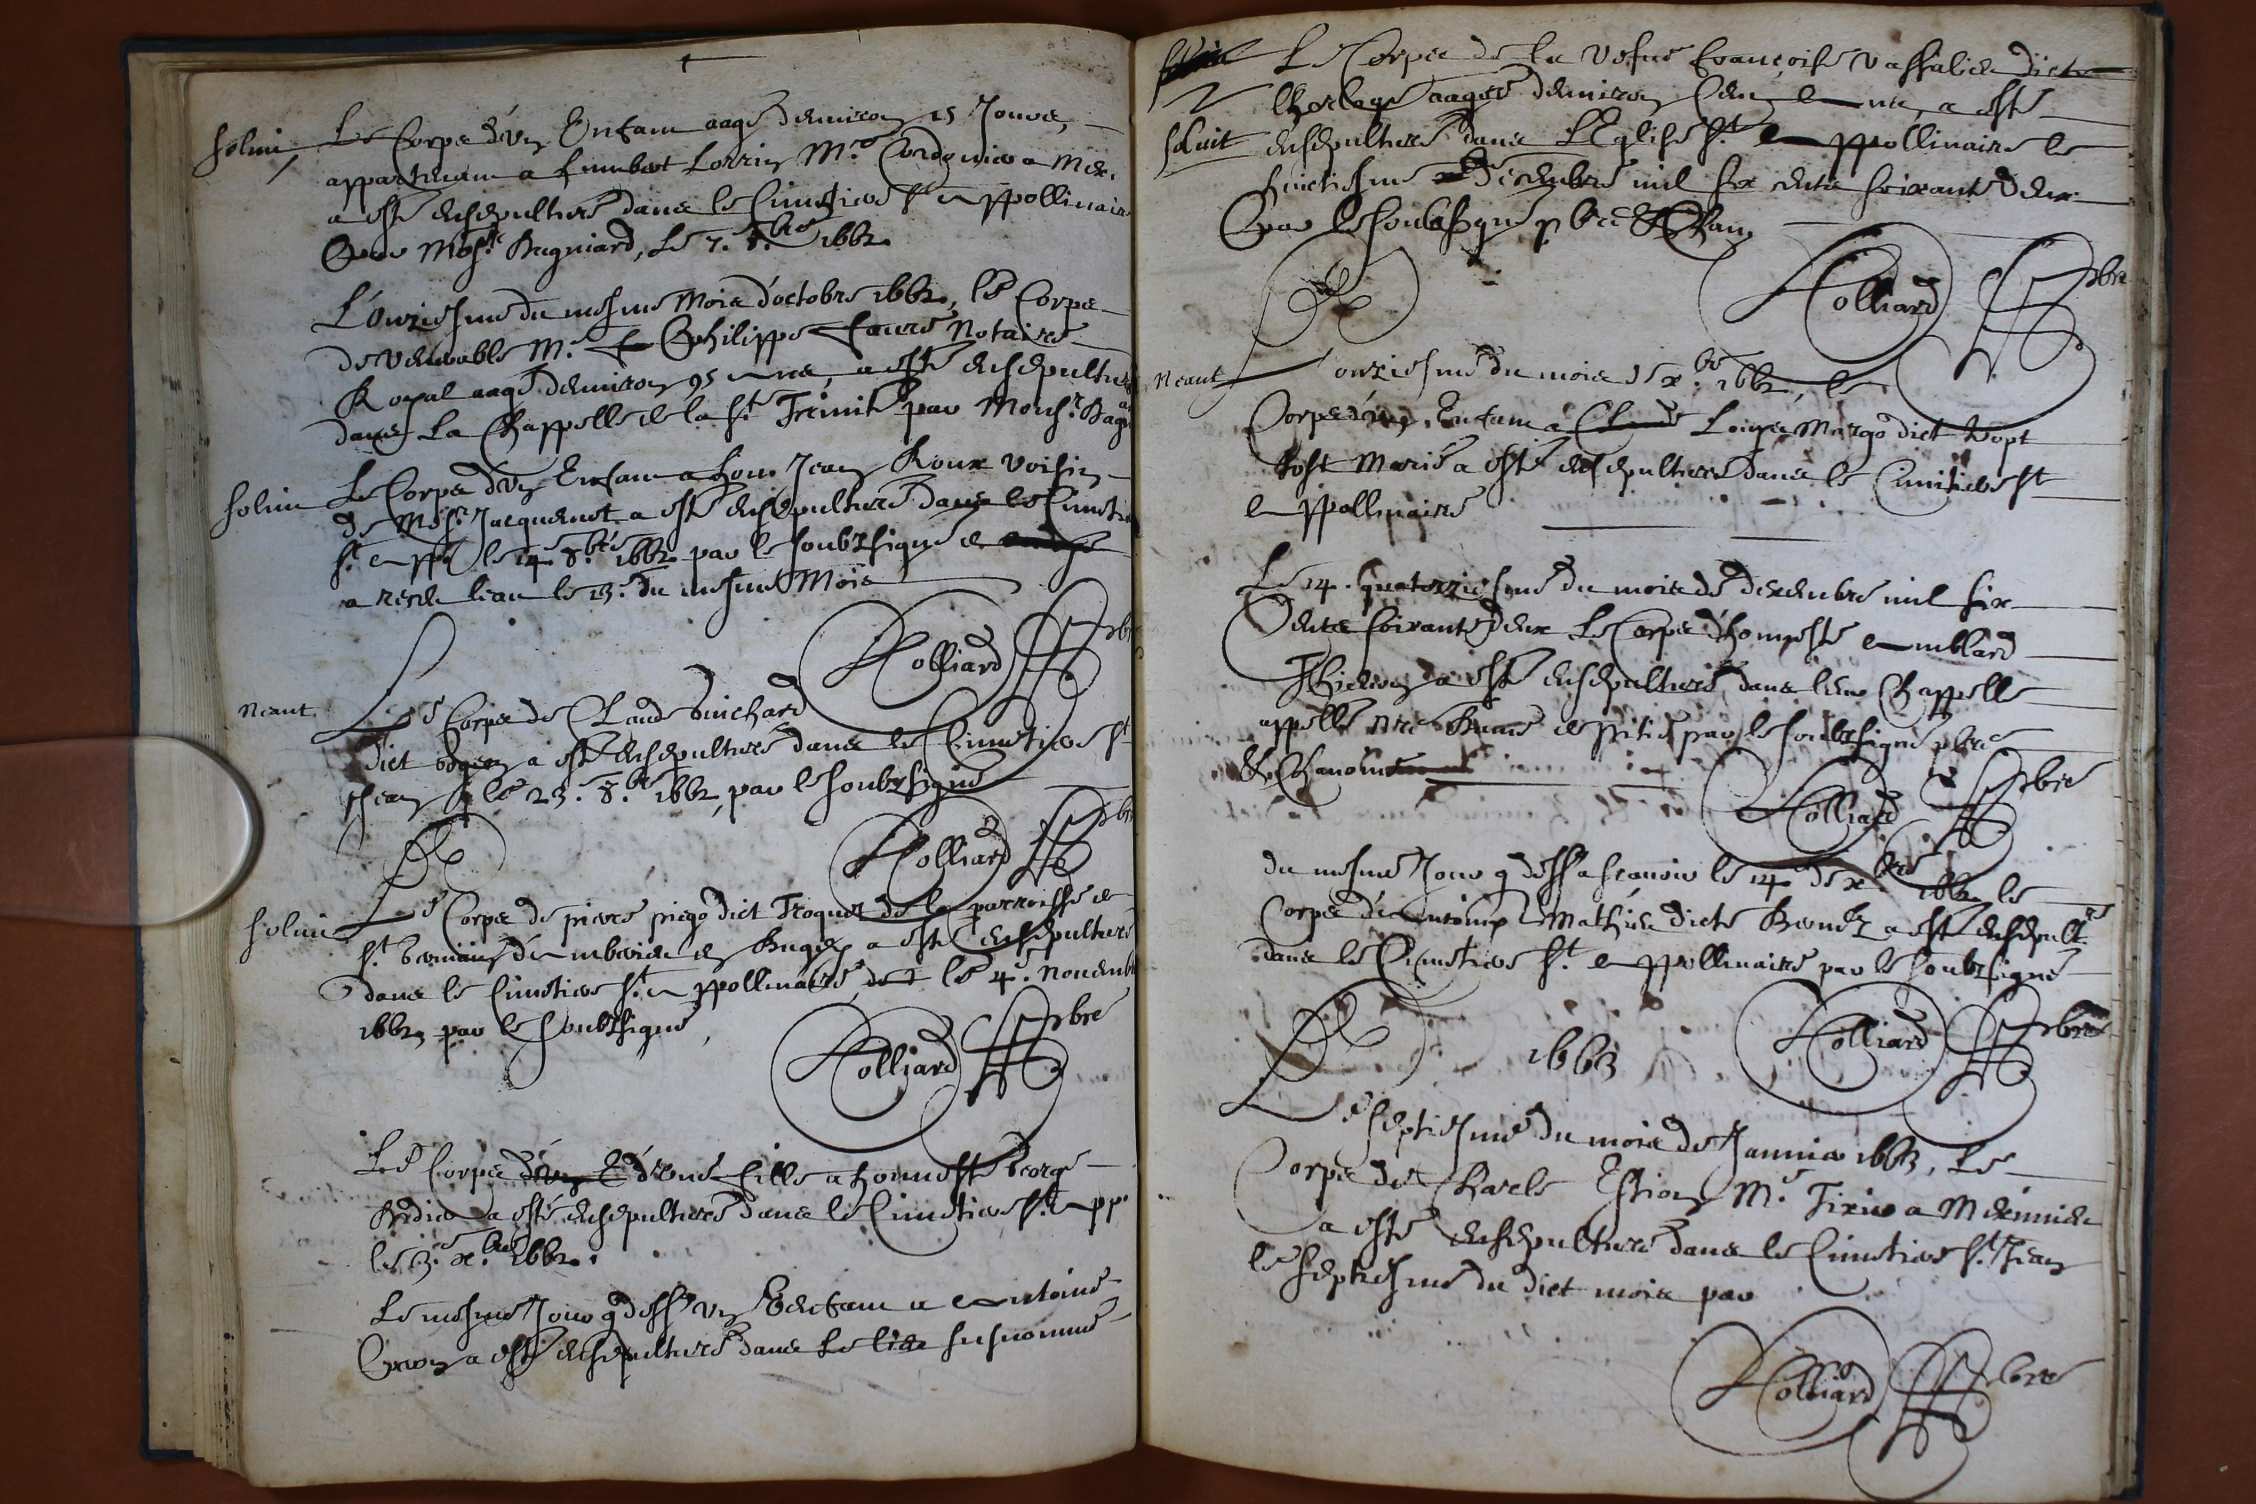 solui Le Corps d'un Enfant aagé denviron 15 Jours,
appartenant a humbert Lorrin M.re Cordonnier a Mex.
a esté ensepulturé dans le Cimetiere St Appollinaire
Par Mosr. Bugniard, Le 7. 8.bre 1662.
L'onziesme du mesme Mois d'octobre 1662, le Corps
de venerable M.e Philippe faure Notaire
Royal aagé denviron 95 ans, a esté ensepulturé
dans La Chappelle de la St Trinité par Monsr. Bag
solui Le Corps d'un Enfant a hon. Jean Roux voisin
de Mosr. Jacquemet a esté ensepulturé dans le Cimet
St App le 14. 8.bre 1662 par le soubzsigné et
a receu leau le 13. du mesme Mois
Holliard pbre
neant Le Corps de Claude Guichard
dict a esté ensepulturé dans le Cimetiere St
Jean le 23. 8.bre 1662, par le soubzsigné
Holliard pbre
solui Le Corps de piere piego dict Troquet de la parroisse de
St Germain d'Amberieu en Bugey a esté ensepulturé
dans le Cimetiere St Appollinaire le 4.e Novemb
1662, par le Soubzsigné,
Holliard pbre
Le Corps d'une fille a honneste George
Bidier a esté ensepulturé dans le Cimetiere St App.
le 3.e x.bre 1662.
Le mesme Jour q dessr un Enfant a Antoine
a esté ensepulturé dans Le lieu susnommé
Le Corps de la vefue françoise vassalier dicte
lhorloge aagée denviron Cent ans, a esté
soluit ensepulturé dans L'Eglise St Appollinaire le
huictiesme Decembre mil six cents soixante deux
Par le soubsigné pbre & Chan.
Holliard pbre
Neant L'onziesme du mois de x.bre 1662, le
Corps d'un Enfant a Louys Margo dict
tost Marié a esté ensepulturé dans le Cimitiere St
Appollinaire
Le 14. quatorziesme du mois de decembre mil six
Cents soixante deux Le Corps d'honneste Amblard
Thienon a esté ensepulturé dans leur Chappelle
appellé nre Dame de pitié par le soubzsigné pbre
& Chanoine
Holliard pbre
du mesme Jour q dessr a scauoir le 14 de x.bre 1662 le
Corps d'Antoine Mathieu dicte a esté ensepult.ré
dans le Cimetiere St Appollinaire par le soubzsigné
Holliard pbre
1663
Le septiesme du mois de Januier 1663, Le
Corps de Charle Estion M.e Tixier a Meximieu
a esté ensepulturé dans le Cimetiere St Jean
le septiesme du dict mois par
Holliard pbre